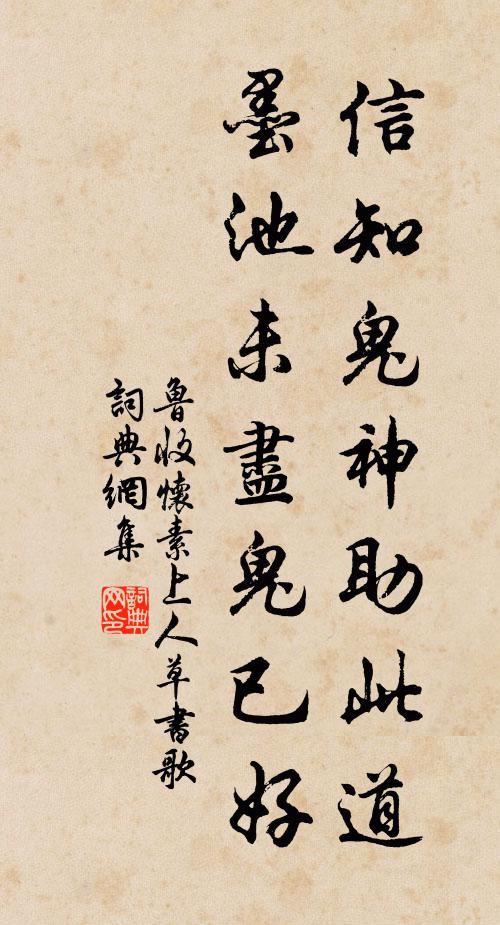 信知鬼神助此道
墨池未盡鬼已好
魯收懷素上人草書歌
詞典網集
詞典
网印